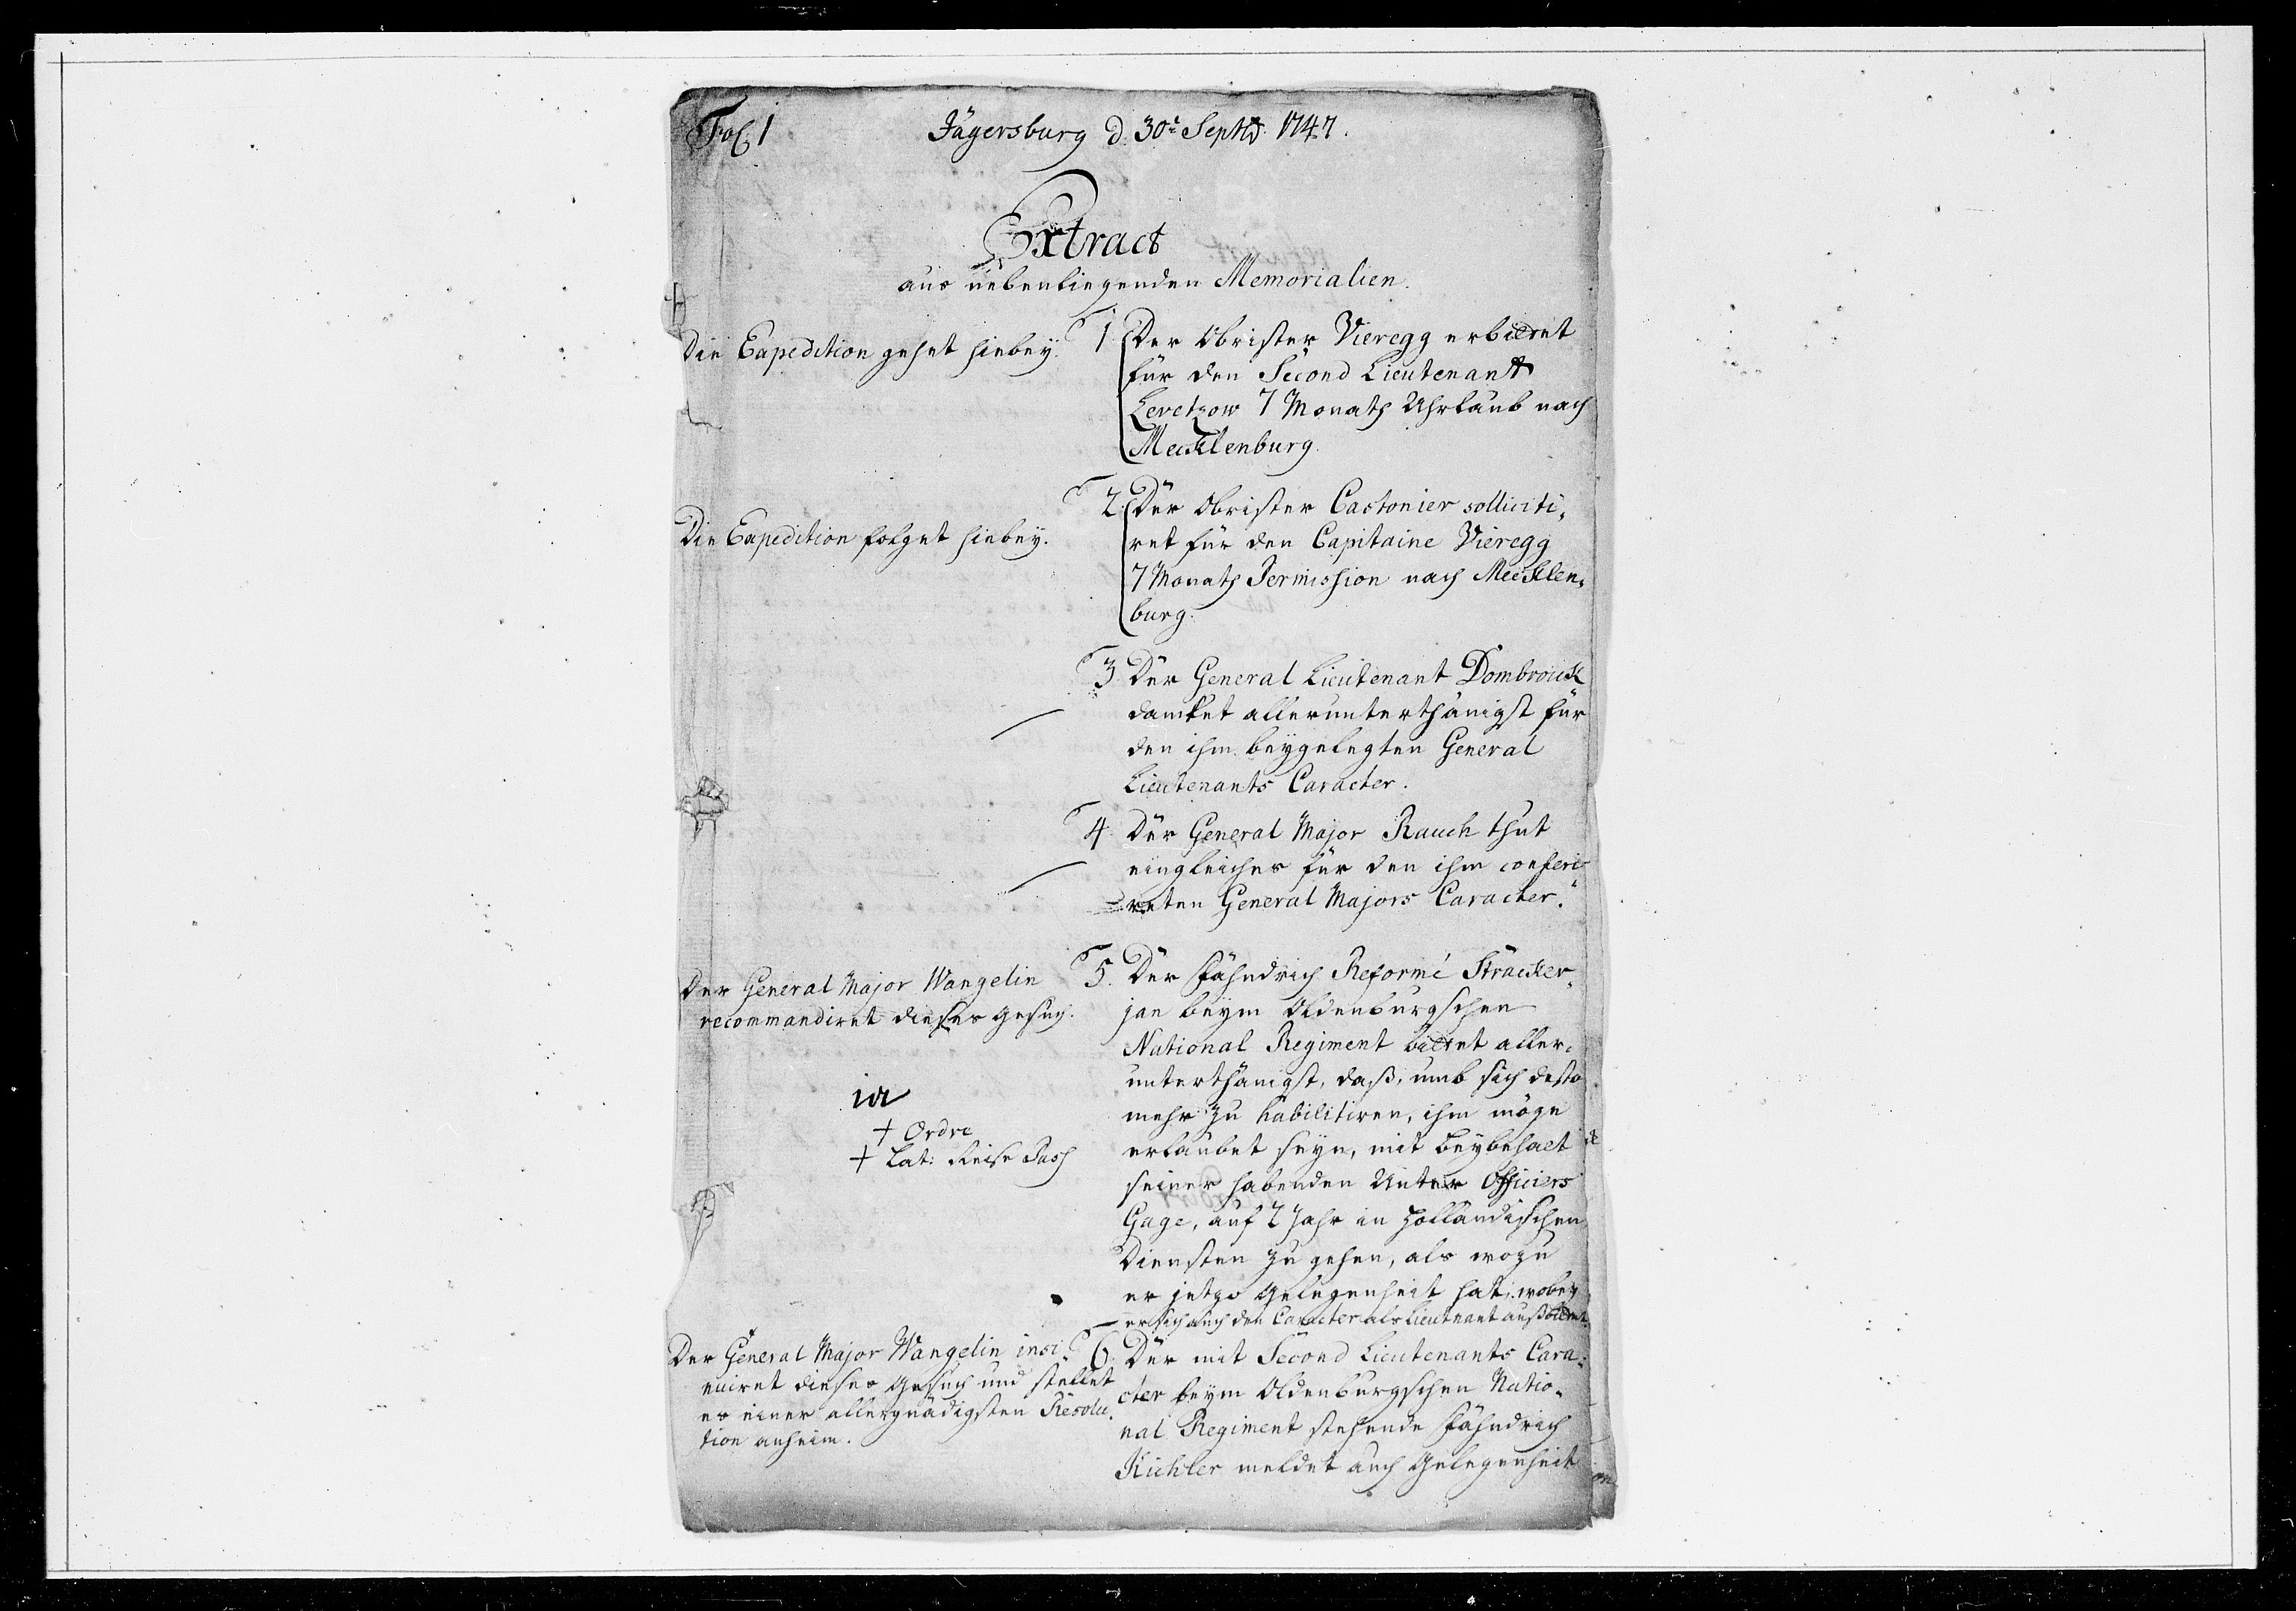 Fol. 1
Jägersburg d. 30t Septbr 1747.
Extract
aus nebenliegenden Memorialien.
Die Expedition gehet hiebey.
1. Der Obrister Vieregg erbittet
für den Second Lieutenant
Levetzow 7 Monath Uhrlaub nach
Mecklenburg.
Die Expedition folget hiebey.
2. Der Obrister Castonier solliciti-
ret für den Capitaine Vieregg
7 Monath Permission nach Mecklen-
burg.
3. Der General Lieutenant Dombroick
dancket allerunterthänigst für
den ihm beygelegten General
Lieutenants Caracter.
4. Der General Major Rauch thut
eingleiches für den ihm conferi-
reten General Majors Caracter.
Der General Major Wangelin
recommandiret dieses Gesuch.
ia
+ Ordre
+ Lat: Reise Pass
5. Der Fähndrich Reformé Stracker-
jan beym Oldenburgschen
National Regiment bittet aller-
unterthänigst, daß, umb sich desto
mehr zu habilitiren, ihm möge
erlaubet seyn, mit Beybehalt
seiner habenden Unter Officiers
Gage, auf 2 Jahr in Holländischen
Diensten zu gehen, als wozu
er jetzo Gelegenheit hat, wobey
er sich auch den Caracter als Lieutnant außbittet.
Der General Major Wangelin insi-
nuiret dieses Gesuch und stellet
es einer allergnädigsten Resolu-
tion anheim.
6. Der mit Second Lieutenants Cara-
cter beym Oldenburgschen Natio-
nal Regiment stehende Fähndrich
Kichler meldet auch Gelegenheit